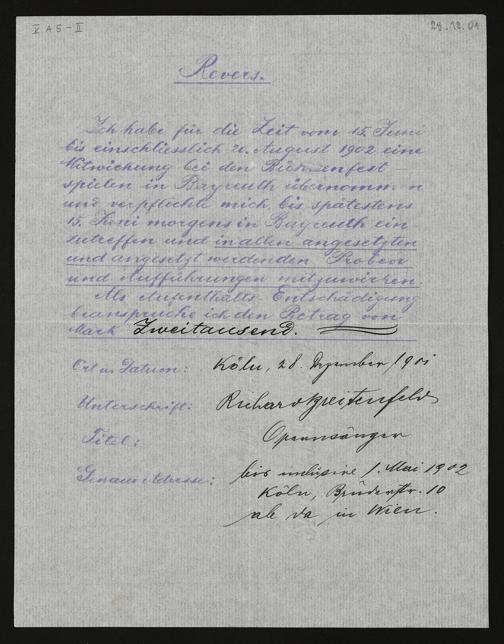 X A 5 - II
28.12.01
Revers.
Ich habe für die Zeit vom 15. Juni
bis einschliesslich 20. August 1902 eine
Mitwirkung bei den Bühnenfest-
spielen in Bayreuth übernommen
und verpflichte mich, bis spätestens
15. Juni morgens in Bayreuth ein
zutreffen und in allen angesetzten
und angesetzt werdenden Proben
und Aufführungen mitzuwirken.
Als Aufenthalts-Entschädigung
beanspruche ich den Betrag von
Mark Zweitausend.
Ort u. Datum: Köln, 28. Dezember 1901
Unterschrift: Richard Breitenfeld
Titel: Opernsänger
Genaue Adresse: bis inclusive 1. Mai 1902
Köln, Brüderstr. 10
ab da in Wien.